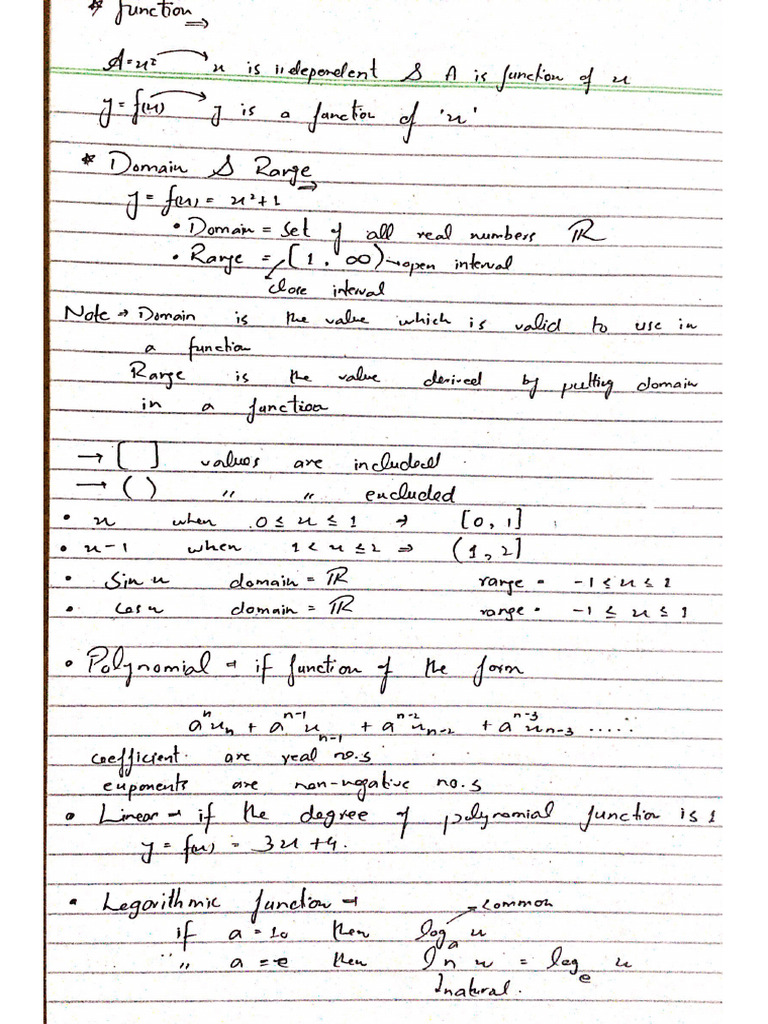 * function ⇒
A = x² → x is independent & A is function of x
y = f(x) → y is a function of 'x'
* Domain & Range ⇒
y = f(x) = x² + 1
• Domain = set of all real numbers ℝ
• Range = [1, ∞) → open interval
close interval
Note → Domain is the value which is valid to use in
a function
Range is the value derived by putting domain
in a function
→ [ ] values are included
→ ( ) " " excluded
• x when 0 ≤ x ≤ 1 ⇒ [0, 1]
• x-1 when 1 < x ≤ 2 ⇒ (1, 2]
• Sin x domain = ℝ range = -1 ≤ x ≤ 1
• Cos x domain = ℝ range = -1 ≤ x ≤ 1
• Polynomial → if function of the form
aⁿxₙ + aⁿ⁻¹xₙ₋₁ + aⁿ⁻²xₙ₋₂ + aⁿ⁻³xₙ₋₃ .....
coefficient are real no.s
exponents are non-negative no.s
• Linear → if the degree of polynomial function is 1
y = f(x) = 3x + 4.
• Legorithmic function →
common
if a = 10 then logₐ x
" a = e then ln x = logₑ x
natural.